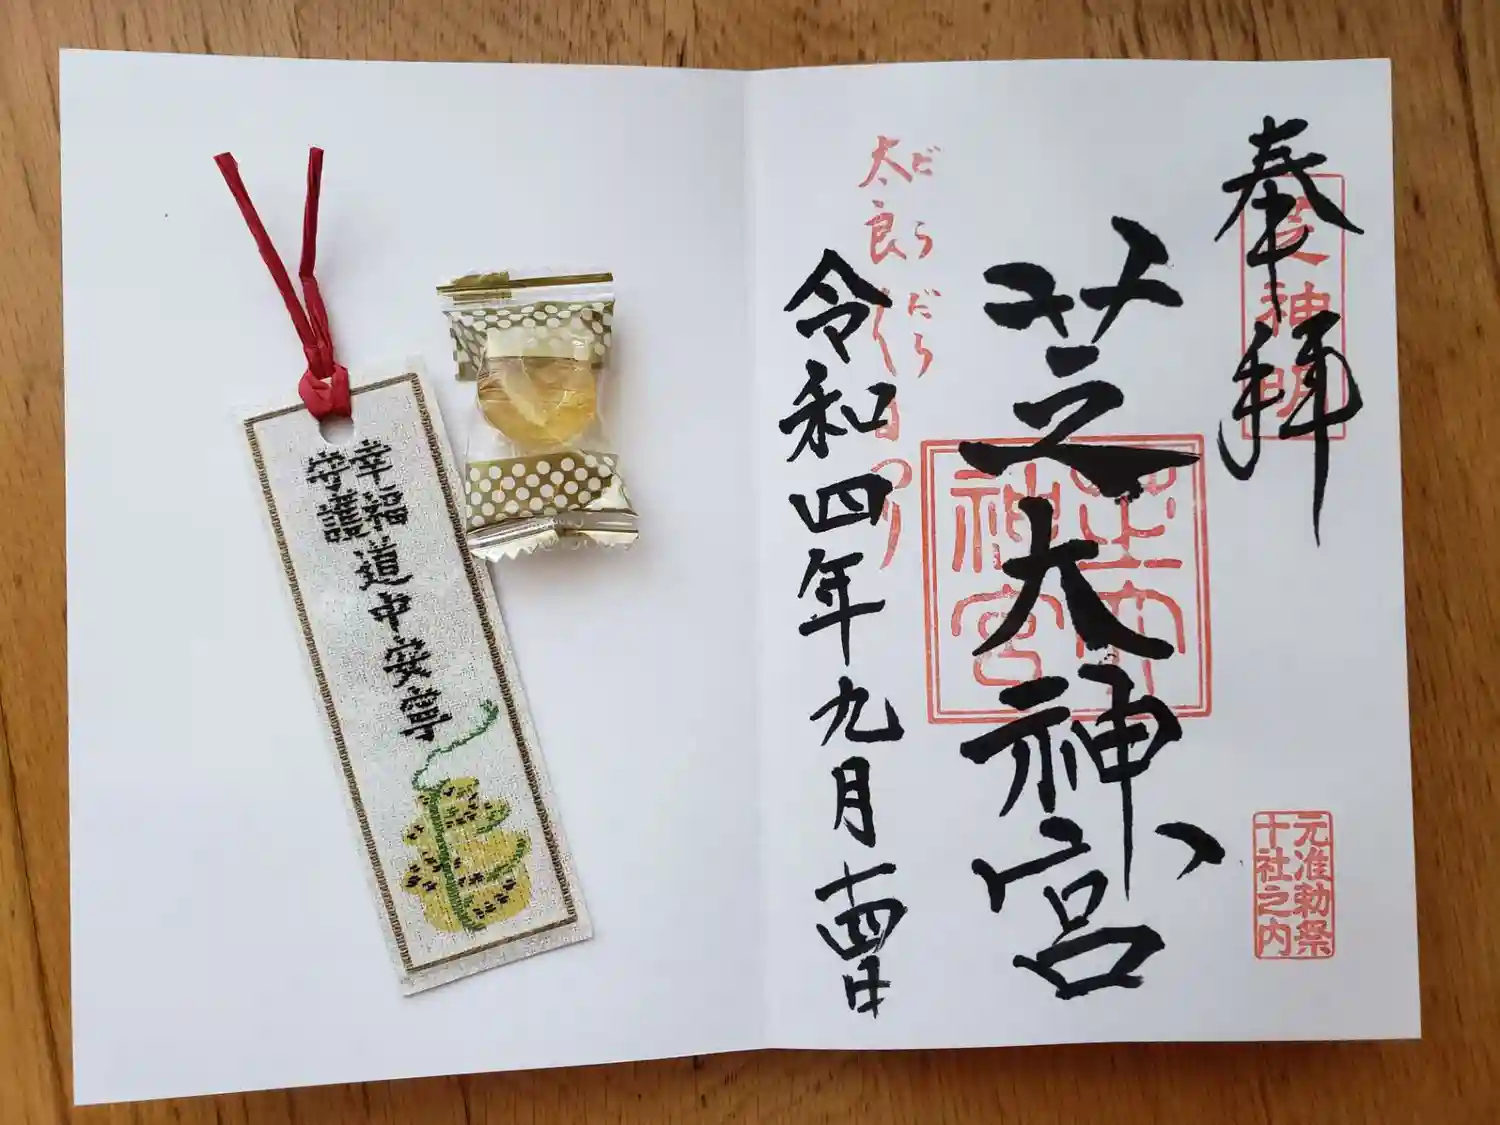 奉拝
芝神明
芝大神宮
芝大神宮
元准勅祭
十社之内
だらだら
太良く
令和四年九月十四日
幸福道中安寧
守護